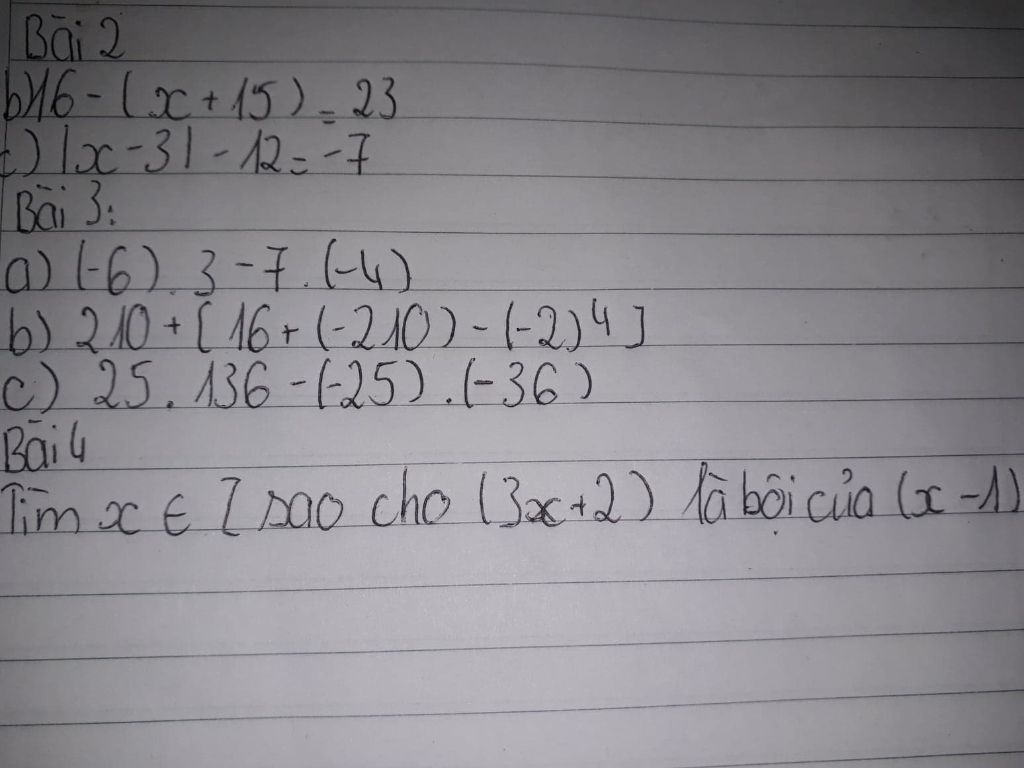 Bài 2
b) 16 - (x + 15) = 23
c) |x - 3| - 12 = -7
Bài 3:
a) (-6) . 3 - 7 . (-4)
b) 210 + [16 + (-210) - (-2)⁴]
c) 25 . 136 - (-25) . (-36)
Bài 4
Tìm x ∈ Z sao cho (3x+2) là bội của (x - 1)